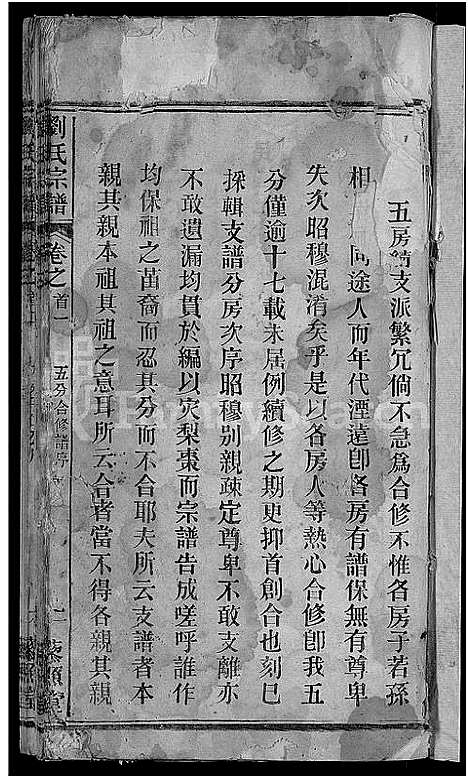 五房請支派繁冗倘不急為合修不惟各房子若孫
相同途人而年代湮遠卽各房有譜保無有尊卑
失次昭穆混淆矣乎是以各房人等熱心合修卽我五
分僅逾十七載未居例續修之期更抑首創合也刻巳
採輯支譜分房次序昭穆別親疎定尊卑不敢支離亦
不敢遺漏均貫於編以灾梨棗而宗譜告成嗟呼誰作
均保祖之苗裔而忍其分而不合耶夫所云支譜者本
親其親本祖其祖之意耳所云合者當不得各親其親
劉氏宗譜 卷之首一 五分合修譜序